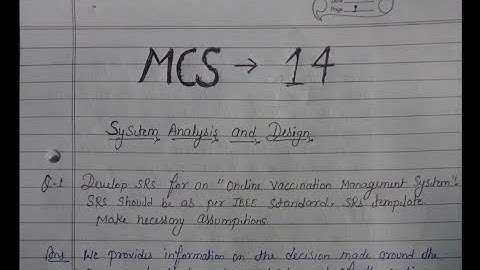 Page
MCS → 14
System Analysis and Design
Q.1 Develop SRS for an "Online Vaccination Management System".
SRS should be as per IEEE standard. SRS template.
Make necessary assumptions.
Ans We provides information on the decision made around the